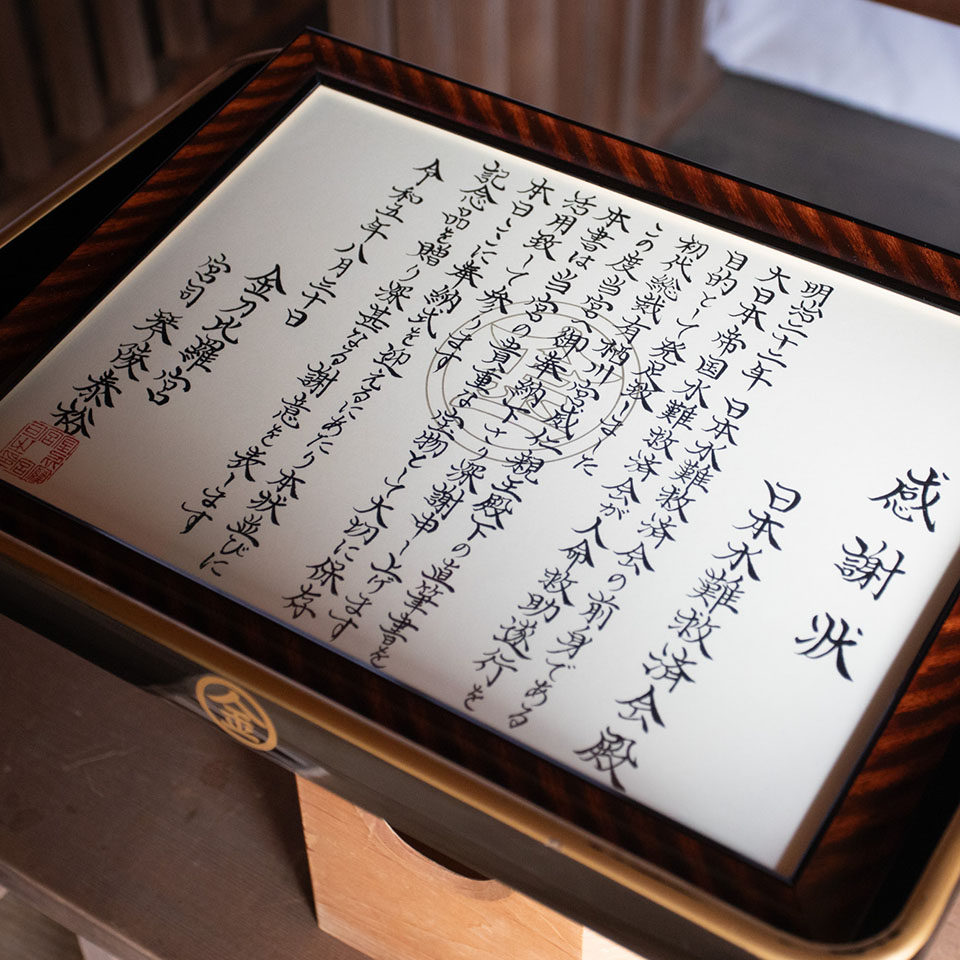 感謝状
日本水難救済会殿
明治二十二年 日本水難救済会の前身である
大日本帝国水難救済会が人命救助遂行を
目的として発足致しました
初代総裁有栖川宮威仁親王殿下の直筆書を
この度当宮へ御奉納下さり深謝申し上げます
本書は当宮の貴重な宝物として大切に保存
活用致して参ります
本日ここに奉納式を迎えるにあたり本状並びに
記念品を贈り深甚なる謝意を表します
令和五年八月三十日
金刀比羅宮
宮司 琴陵泰裕
金